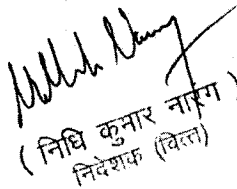 ( निधि कुमार नारंग )
निदेशक (वित्त)